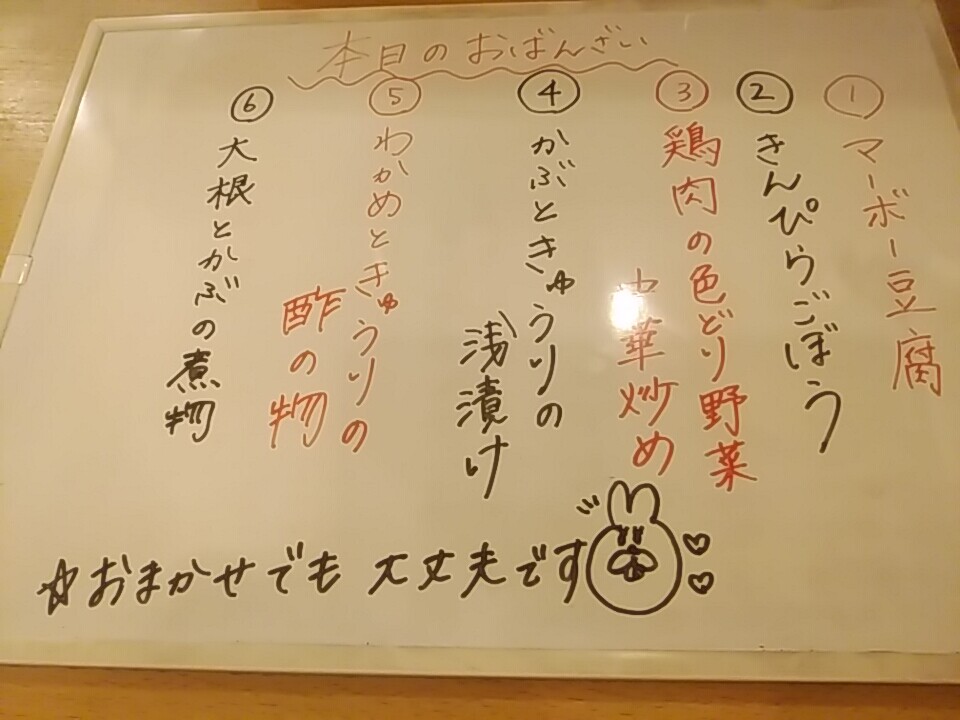 本日のおばんざい
① マーボー豆腐
② きんぴらごぼう
③ 鶏肉の色どり野菜
中華炒め
④ かぶときゅうりの
浅漬け
⑤ わかめときゅうりの
酢の物
⑥ 大根とかぶの煮物
☆おまかせでも大丈夫です